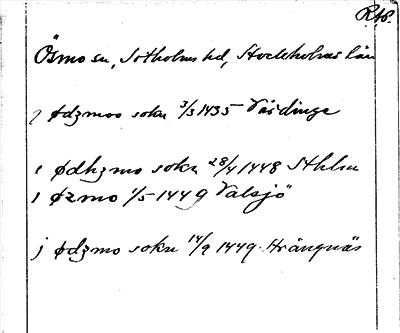 RAp.
Ösmo sn, Sotholms hd, Stockholms län
j ødzmoo sokn 3/3 1435 Vårdinge
i ødhzmo sokn 28/4 1448 Sthlm
i øzmo 1/5 1449 Valsjö
j ødzmo sokn 14/9 1449 Hrångnäs